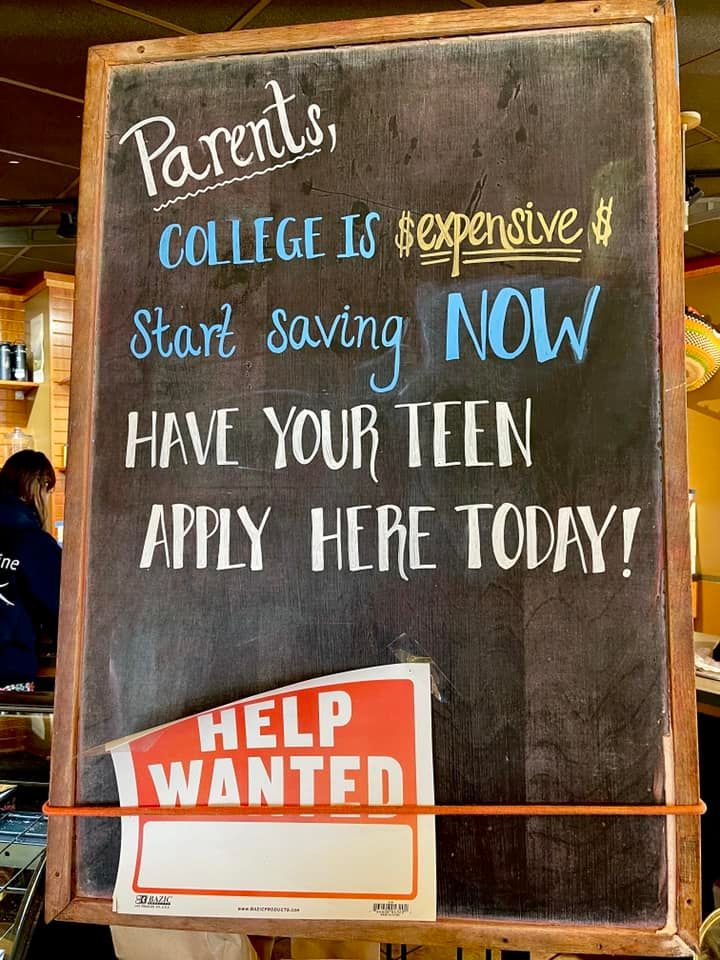 Parents,
COLLEGE IS $expensive$
Start saving NOW
HAVE YOUR TEEN
APPLY HERE TODAY!
HELP
WANTED
BAZIC
www.BAZICPRODUCTS.com
ine